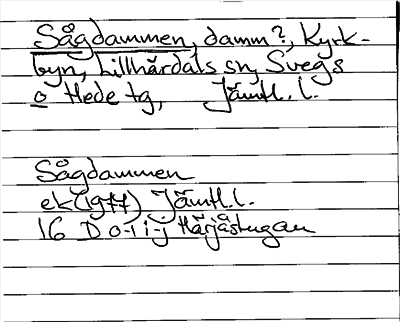 Sågdammen, damm?, Kyrk-
byn, Lillhärdals sn, Svegs
o Hede tg, Jämtl. l.
Sågdammen
ek (1977) Jämtl. l.
16 D o-i i-j Härjåstugan